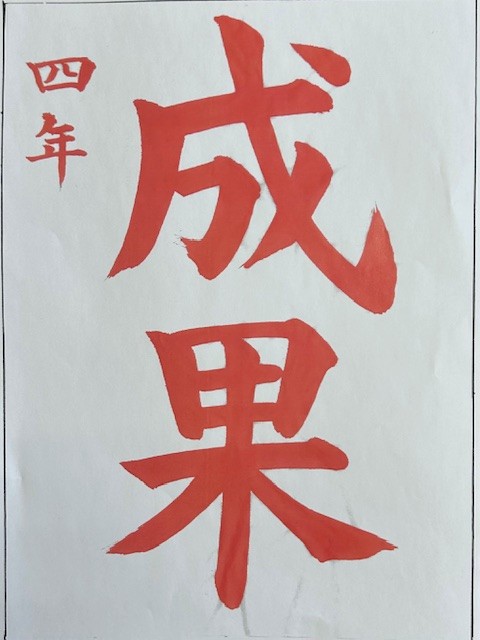 成果
四年